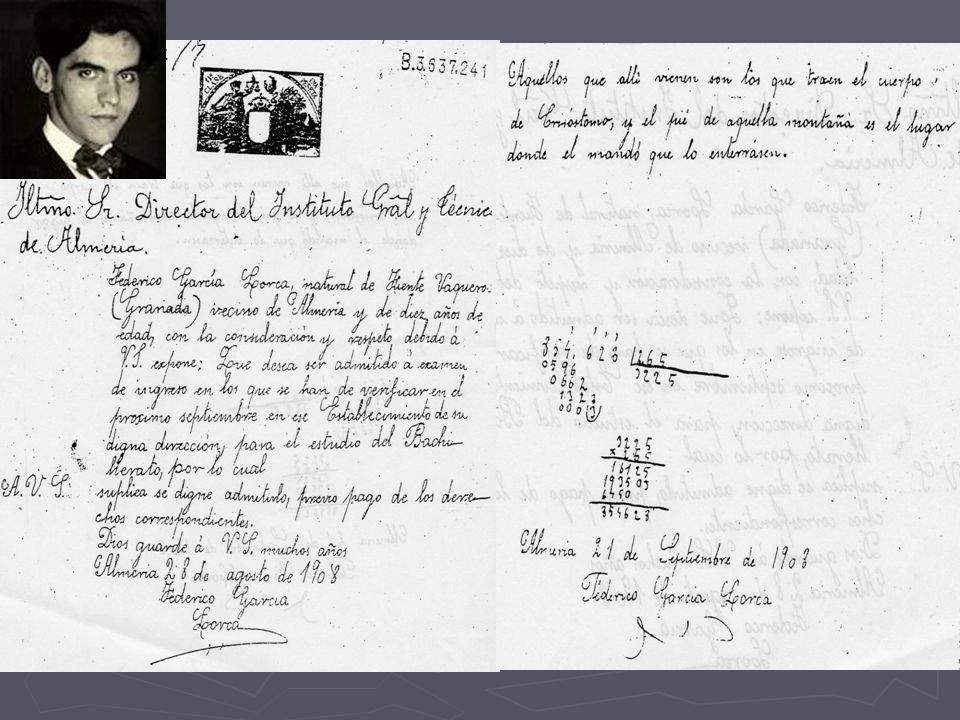 B.3.637.241
Iltmo. Sr. Director del Instituto Gral y Técnic
de Almeria.
Federico García Lorca, natural de Fuente Vaquero
(Granada) vecino de Almería y de diez años de
edad, con la consideración y respeto debido á
V.S. expone; Que desea ser admitido á examen
de ingreso en los que se han de verificar en el
proximo septiembre en ese Establecimiento de su
digna dirección, para el estudio del Bachi-
llerato, por lo cual
A. V. S. suplica se digne admitirlo, previo pago de los dere-
chos correspondientes.
Dios guarde á V.S. muchos años
Almeria 28 de agosto de 1908
Federico García
Lorca
Aquellos que alli vienen son los que traen el cuerpo
de y el pié de aquella montaña es el lugar
donde el mandó que lo enterrásen.
354,623 265
0596 3225
0662
1323
3225
× 265
16125
19350
6450
354623
Almeria 21 de Septiembre de 1908
Federico García Lorca